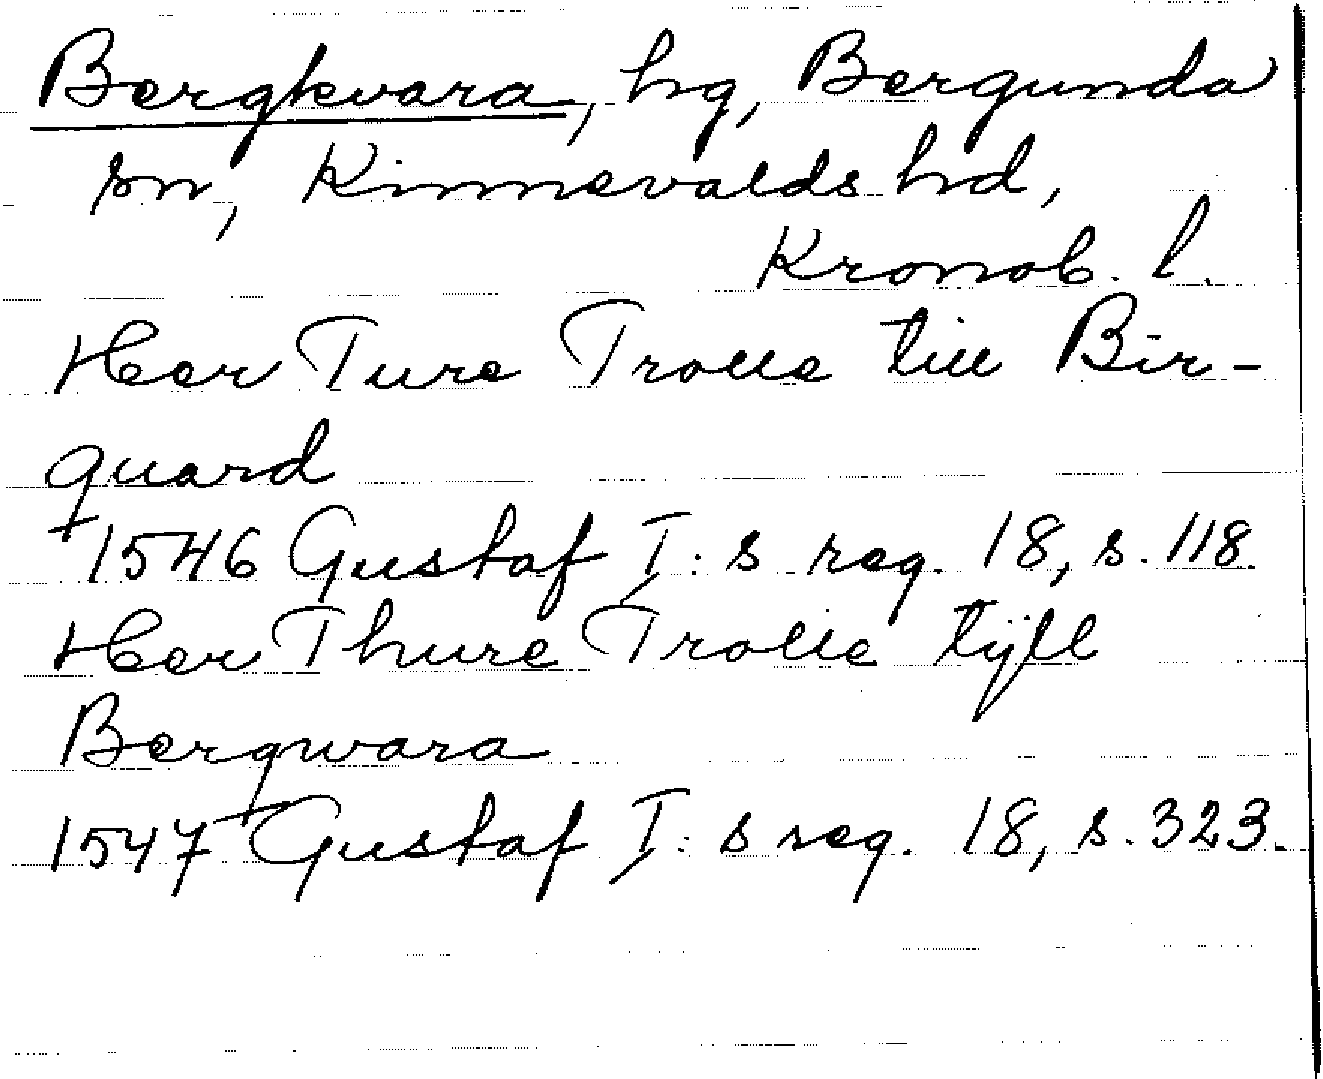 Bergkvara, hg, Bergunda
sn, Kinnevalds hd,
Kronob. l.
Her Ture Trolle till Bir-
quard
1546 Gustaf I:s reg. 18, s. 118.
Her Thure Trolle tÿll
Bergwara
1547 Gustaf I:s reg. 18, s. 323.